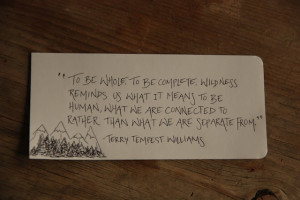 "TO BE WHOLE. TO BE COMPLETE. WILDNESS
REMINDS US WHAT IT MEANS TO BE
HUMAN, WHAT WE ARE CONNECTED TO
RATHER THAN WHAT WE ARE SEPARATE FROM."
TERRY TEMPEST WILLIAMS